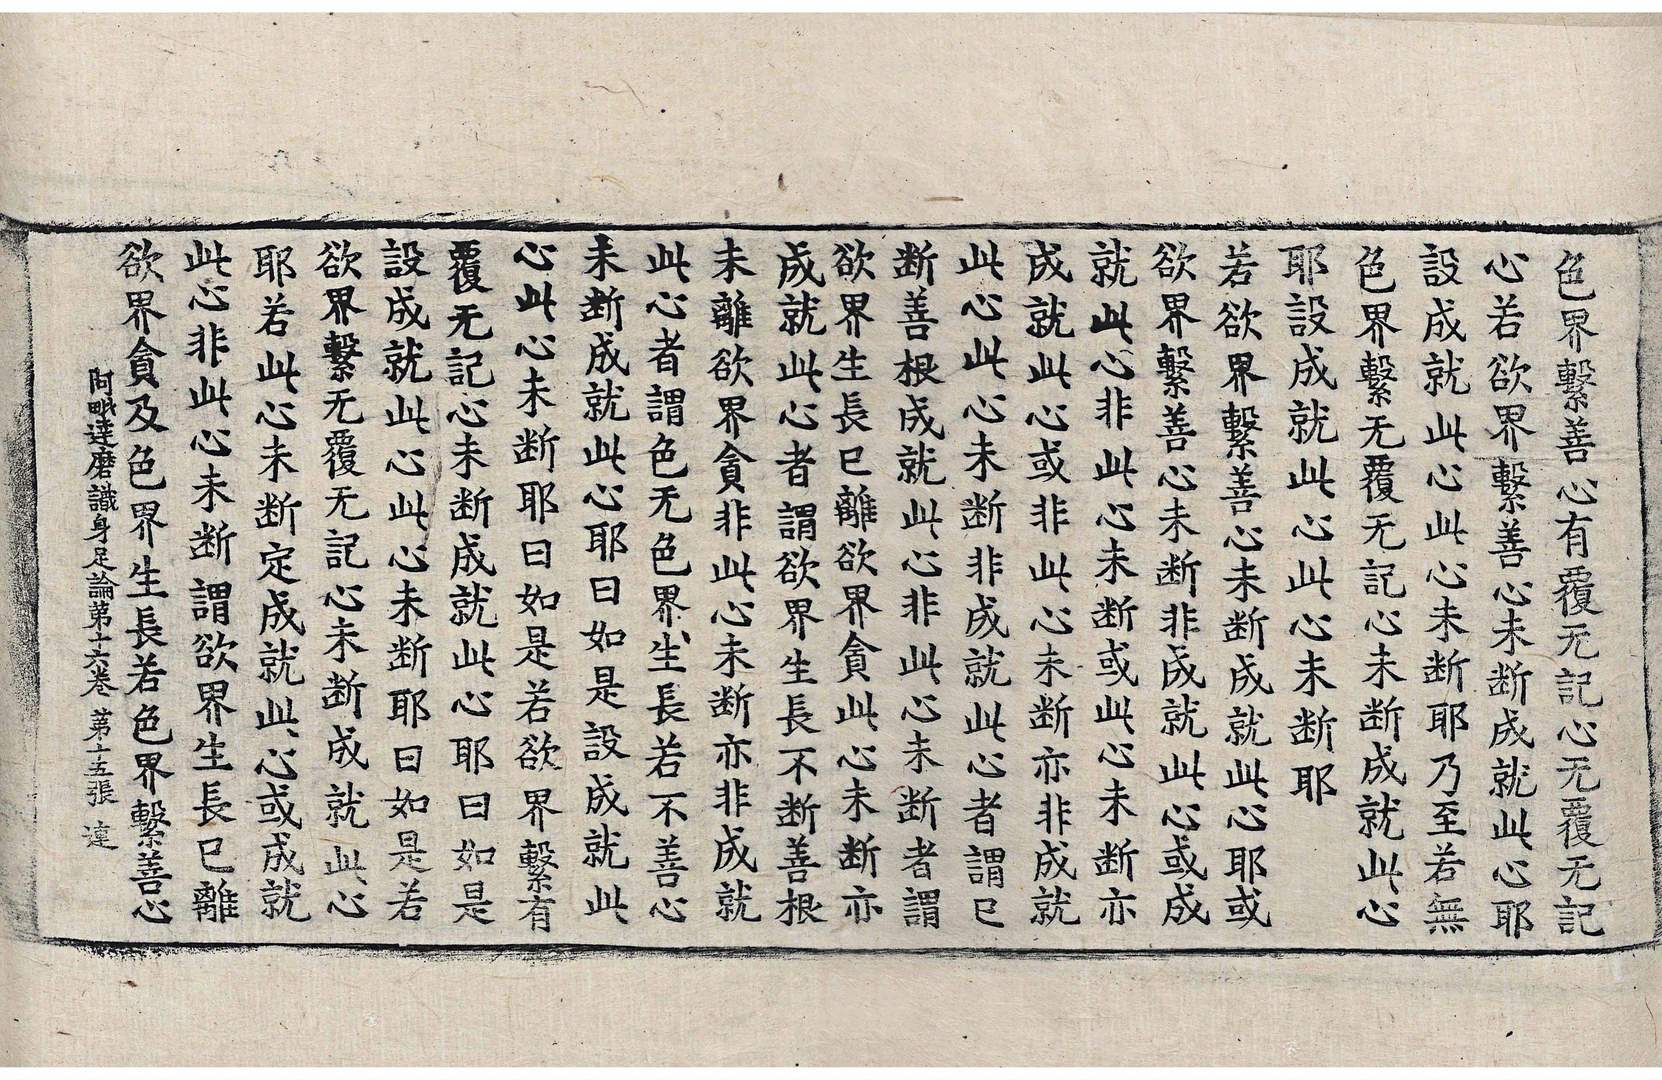 色界繫善心有覆无記心无覆无記
心若欲界繫善心未断成就此心耶
設成就此心此心未断耶乃至若無
色界繫无覆无記心未断成就此心
耶設成就此心此心未断耶
若欲界繫善心未断成就此心耶或
欲界繫善心未断非成就此心或成
就此心非此心未断或此心未断亦
成就此心或非此心未断亦非成就
此心此心未断非成就此心者謂已
断善根成就此心非此心未断者謂
欲界生長已離欲界貪此心未断亦
成就此心者謂欲界生長不断善根
未離欲界貪非此心未断亦非成就
此心者謂色无色界生長若不善心
未断成就此心耶曰如是設成就此
心此心未断耶曰如是若欲界繫有
覆无記心未断成就此心耶曰如是
設成就此心此心未断耶曰如是若
欲界繫无覆无記心未断成就此心
耶若此心未断定成就此心或成就
此心非此心未断謂欲界生長已離
欲界貪及色界生長若色界繫善心
阿毗達磨識身足論第十六卷 第十五張 達